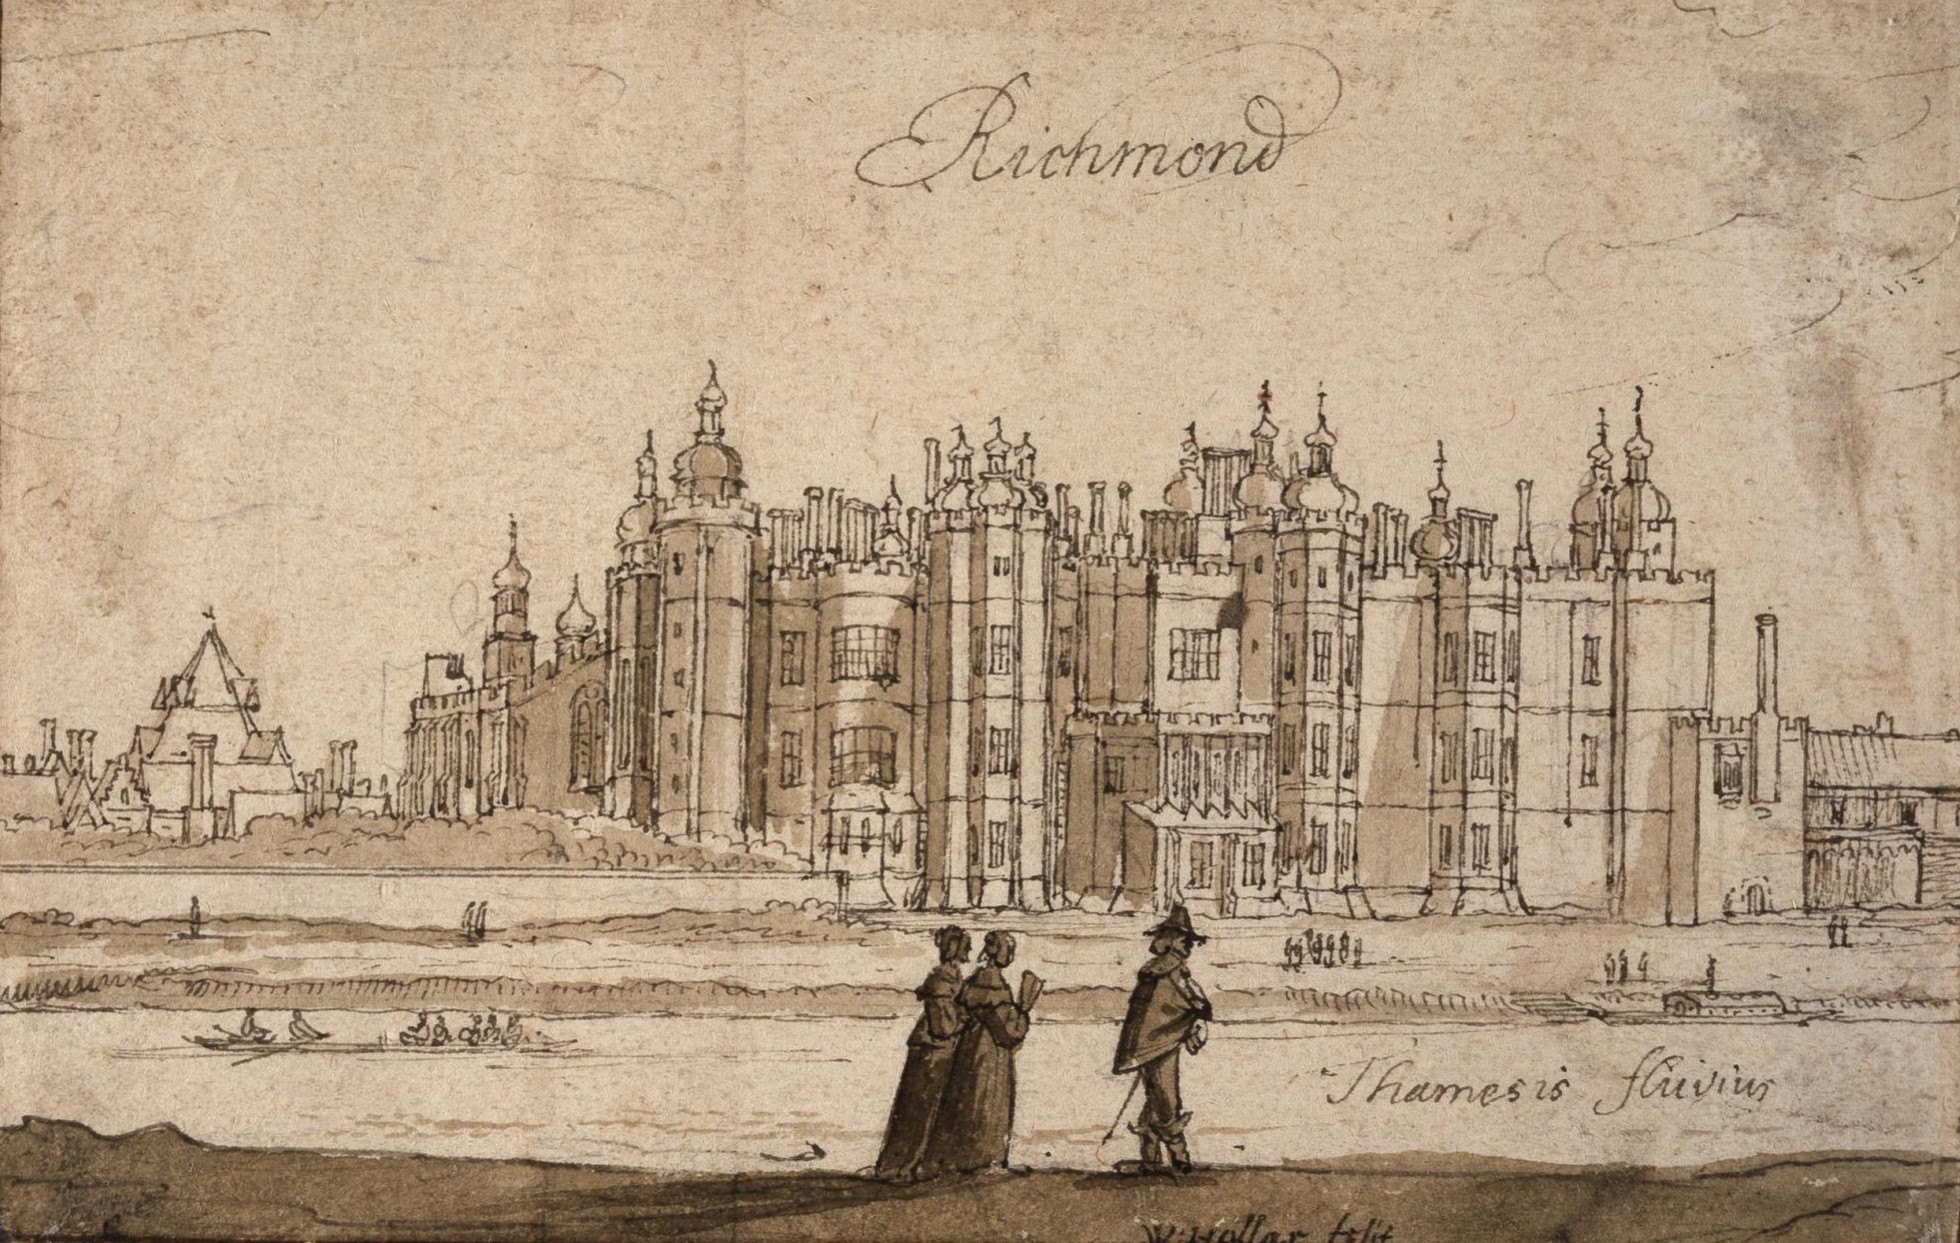 Richmond
Thamesis fluvius
W: Hollar fesit